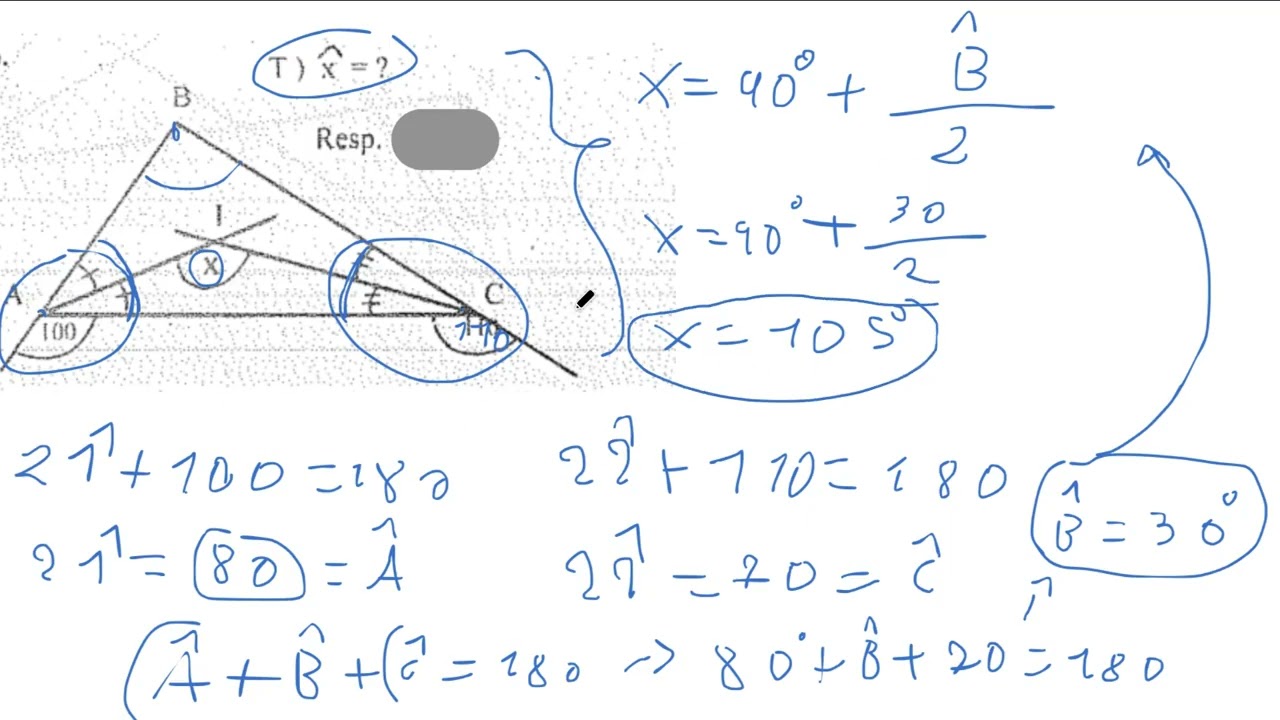 T) x̂ = ?
B
Resp.
I
X
A
C
100
110
X = 90° + B̂/2
X = 90° + 30/2
X = 105°
2 1̂ + 100 = 180
2 1̂ = 80 = Â
2 2̂ + 110 = 180
2 2̂ = 70 = Ĉ
B̂ = 30°
Â + B̂ + Ĉ = 180 → 80° + B̂ + 70 = 180